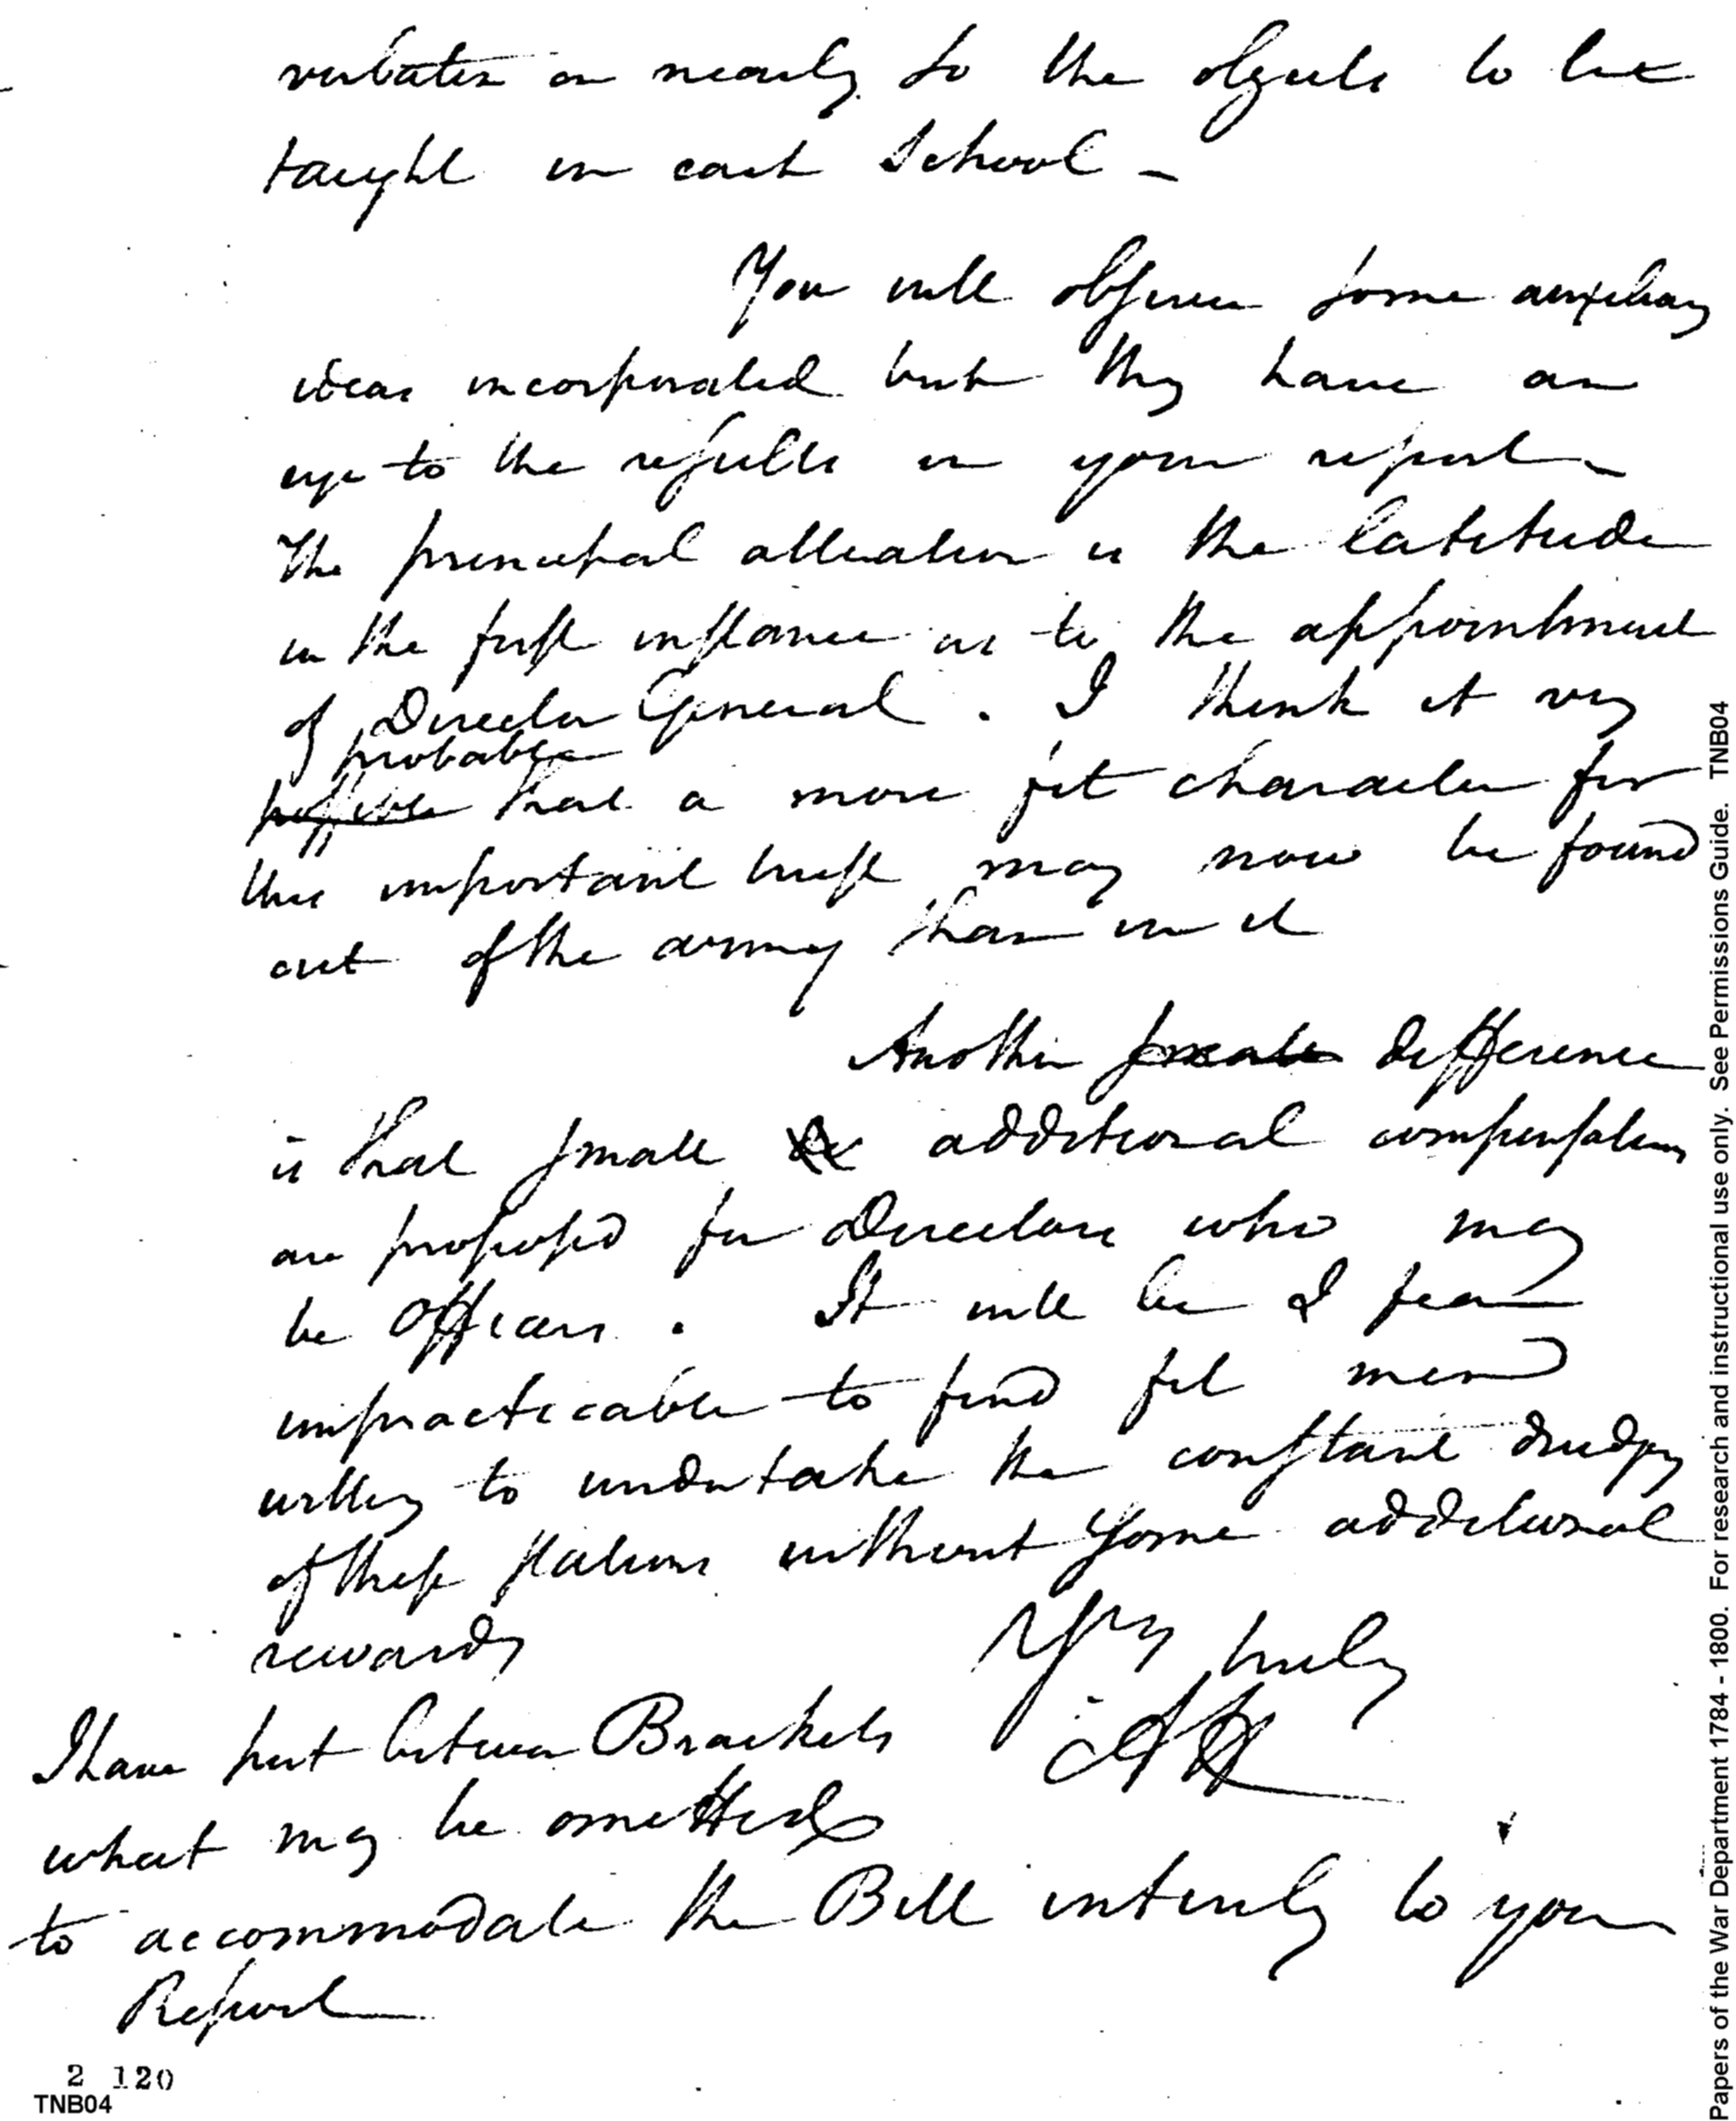 verbatim or nearly so the objects to be
taught in each School –
You will observe some auxiliary
ideas incorporated but they have an
eye to the results in your report –
The principal alteration is the latitude
in the first instance as to the appointment
of Director General. I think it very
probable
possible that a more fit character for
this important trust may now be found
out of the army than in it
Another difference
is that small additional compensations
are proposed for Directors who may
be Officers. It will be I fear
impracticable to find fit men
willing to undertake the constant drudgery
of these stations without some additional
rewards
Yrs truly
AH
I have put between Brackets
what may be omitted
to accommodate the Bill entirely to your
Report
2 120
TNB04
Papers of the War Department 1784 - 1800. For research and instructional use only. See Permissions Guide. TNB04